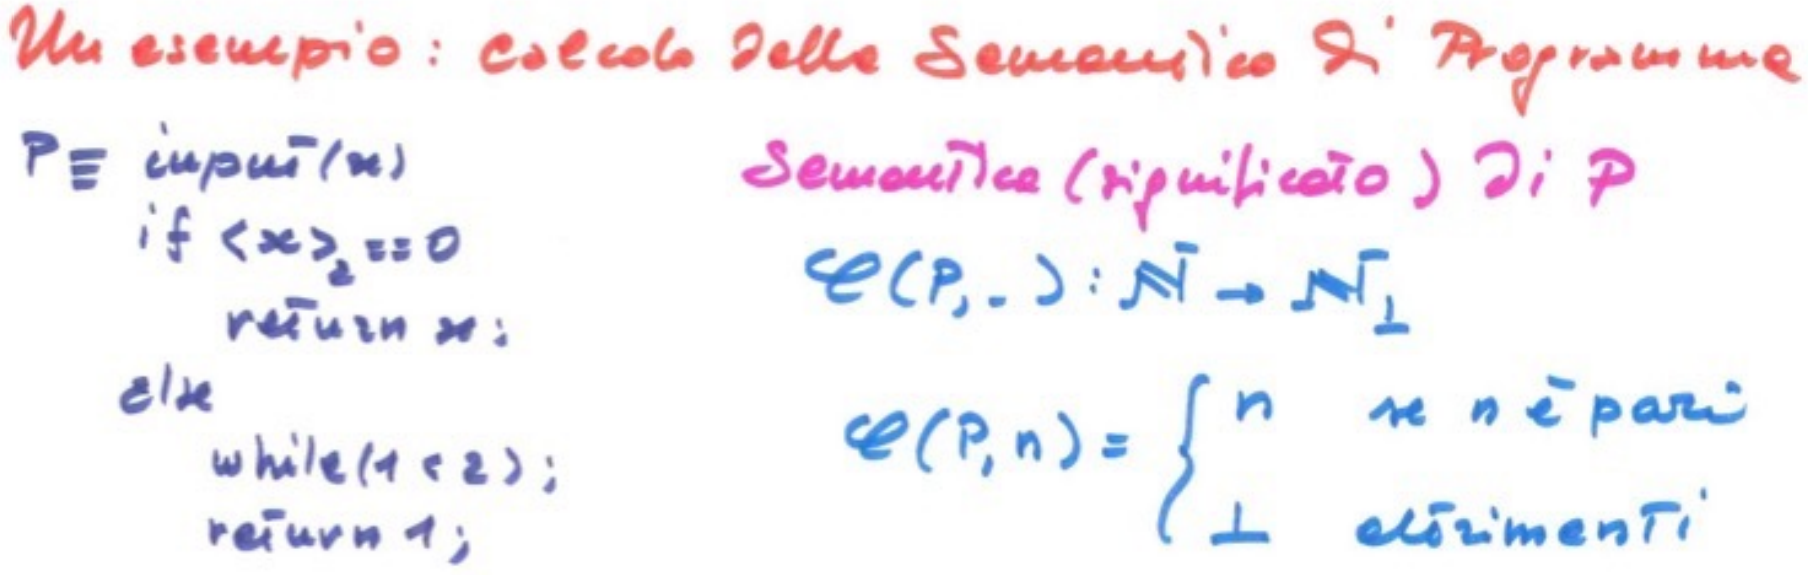 Un esempio: calcolo della Semantica di Programma
P≡ input(x)
if <x>₂ == 0
return x;
else
while(1<2);
return 1;
Semantica (significato) di P
𝒞(P,_): ℕ → ℕ⊥
𝒞(P,n) = { n se n è pari
⊥ altrimenti